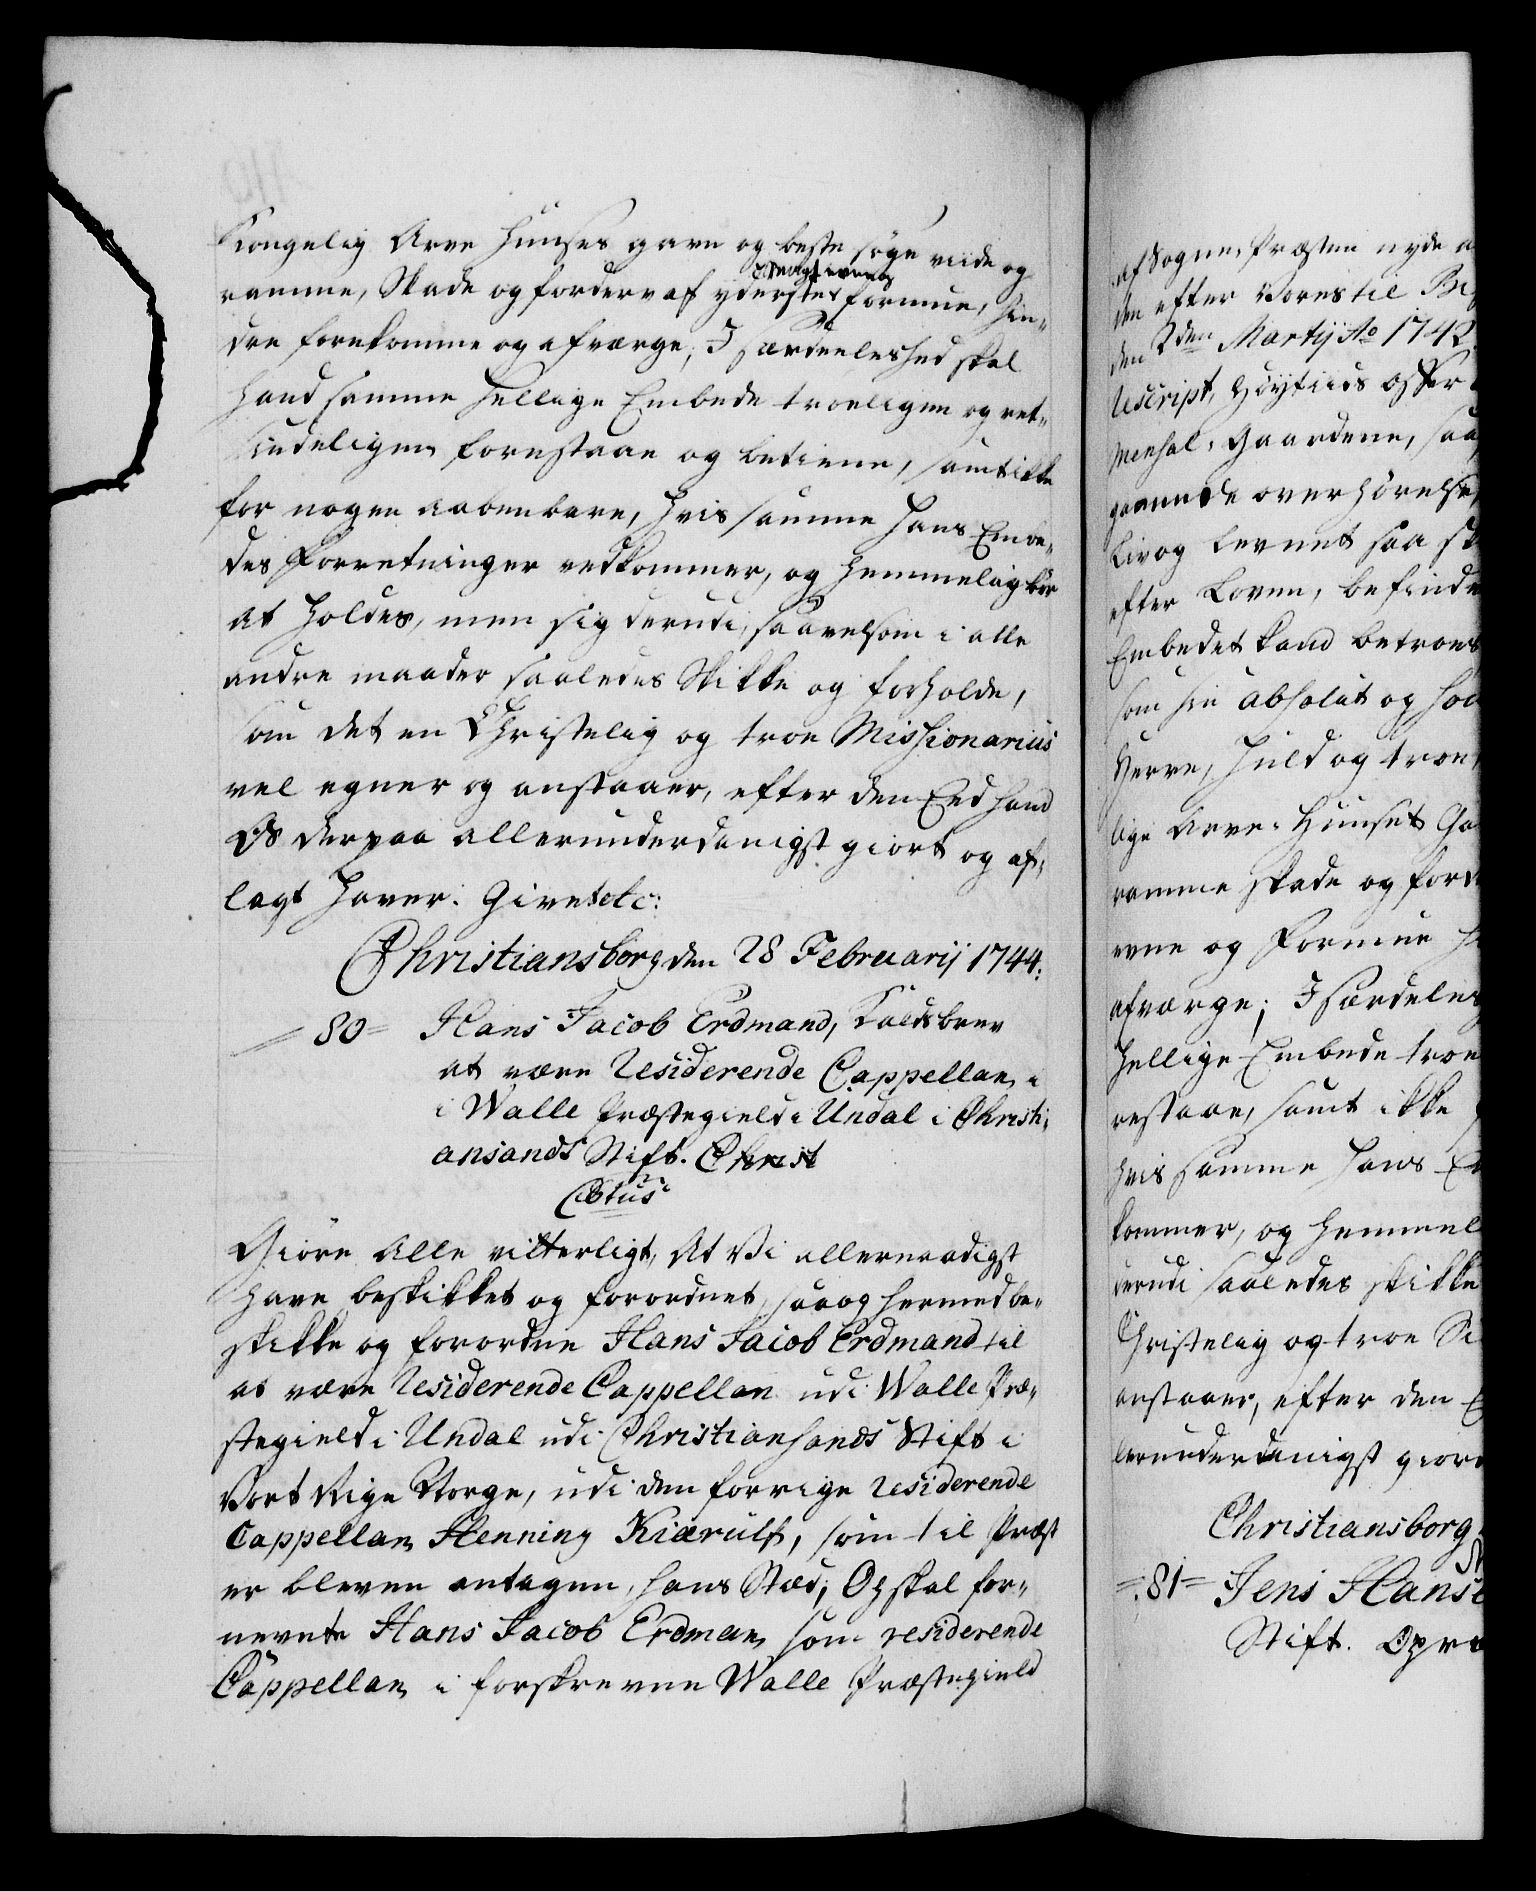 Kongelig Arve Huuses gavn og beste søge viide og
ramme, Skade og forderv af yderste formue, hin-
Magt evne og
dre forekomme og afværge; J særdeeleshed skal
hand samme hellige Embede troeligen og ret-
sindeligen forestaae og betiene, samt ikke
for nogen aabenbare, hvis samme hans Embe-
des Forretninger vedkommer, og hemmelig bør
at holdes, men sig derudi, saavelsom i alle
andre maader saaledes Skikke og forholde,
som det en Christelig og troe Missionarius
vel egner og anstaaer, efter den Eed hand
Os derpaa allerunderdanigst giort og af-
lagt haver. Givet etc:
Christiansborg den 28 Februarij 1744.
= 80 = Hans Jacob Erdmand, Kaldsbrev
at være Residerende Cappellan i
i Walle Præstegield i Undal i Christi-
ansands Stift. Christ
C6tus
Giøre Alle vitterligt, At Vi allernaadigst
have beskikket og forordnet, saa og hermed be-
skikke og forordne Hans Jacob Erdmand til
at være Residerende Cappellan udi Walle Præ-
stegield i Undal udi Christiansands Stift i
Vort Rige Norge, udi den forrige Residerende
Cappellan Henning Kiærulf, som til Præst
er bleven antagen, hans Stæd; Og skal for-
nevnte Hans Jacob Erdman som residerende
Cappellan i forskrevne Walle Præstegield
af Sogne-Præsten nyde
den efter Vores til
den 2den Martij Ao 1742.
Rescript, Høytiids Offer
Mensal-Gaardene, saa
overhørelse,
Liv og Levnet saa
efter Loven, befindes
Embedet kand betroes
som sin absolut og
Herre, huld og troe,
lige Arve-Huuset
ramme skade og
evne og Formue
afværge; J særdeles
hellige Embede troe
restaae, samt ikke
hvis samme hans
kommer, og hemmel
derudi saaledes skikke
Christelig og troe
anstaaer, efter den
lerunderdanigst giort
Christiansborg
= 81 = Jens Hanse
Stift.